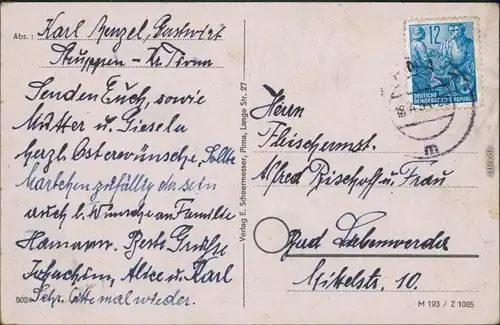 Abs.: Karl Menzel, Gastwirt
Struppen - Kr. Pirna
Senden Euch, sowie
Mutter u. Gisela
herzl. Osterwünsche, Sollte
Märtchen zufällig da sein
auch l. Wünsche an Familie
Hamann. Beste Grüße
Joachim, Alice u. Karl
Sehr bitte mal wieder.
5024
Verlag E. Scheermesser, Pirna, Lange Str. 27
12
DEUTSCHE
DEMOKRATISCHE REPUBLIK
Herrn
Fleischermst.
Alfred Bischoff u. Frau
Bad Liebenwerda
Mittelstr. 10.
M 193 / Z 1085